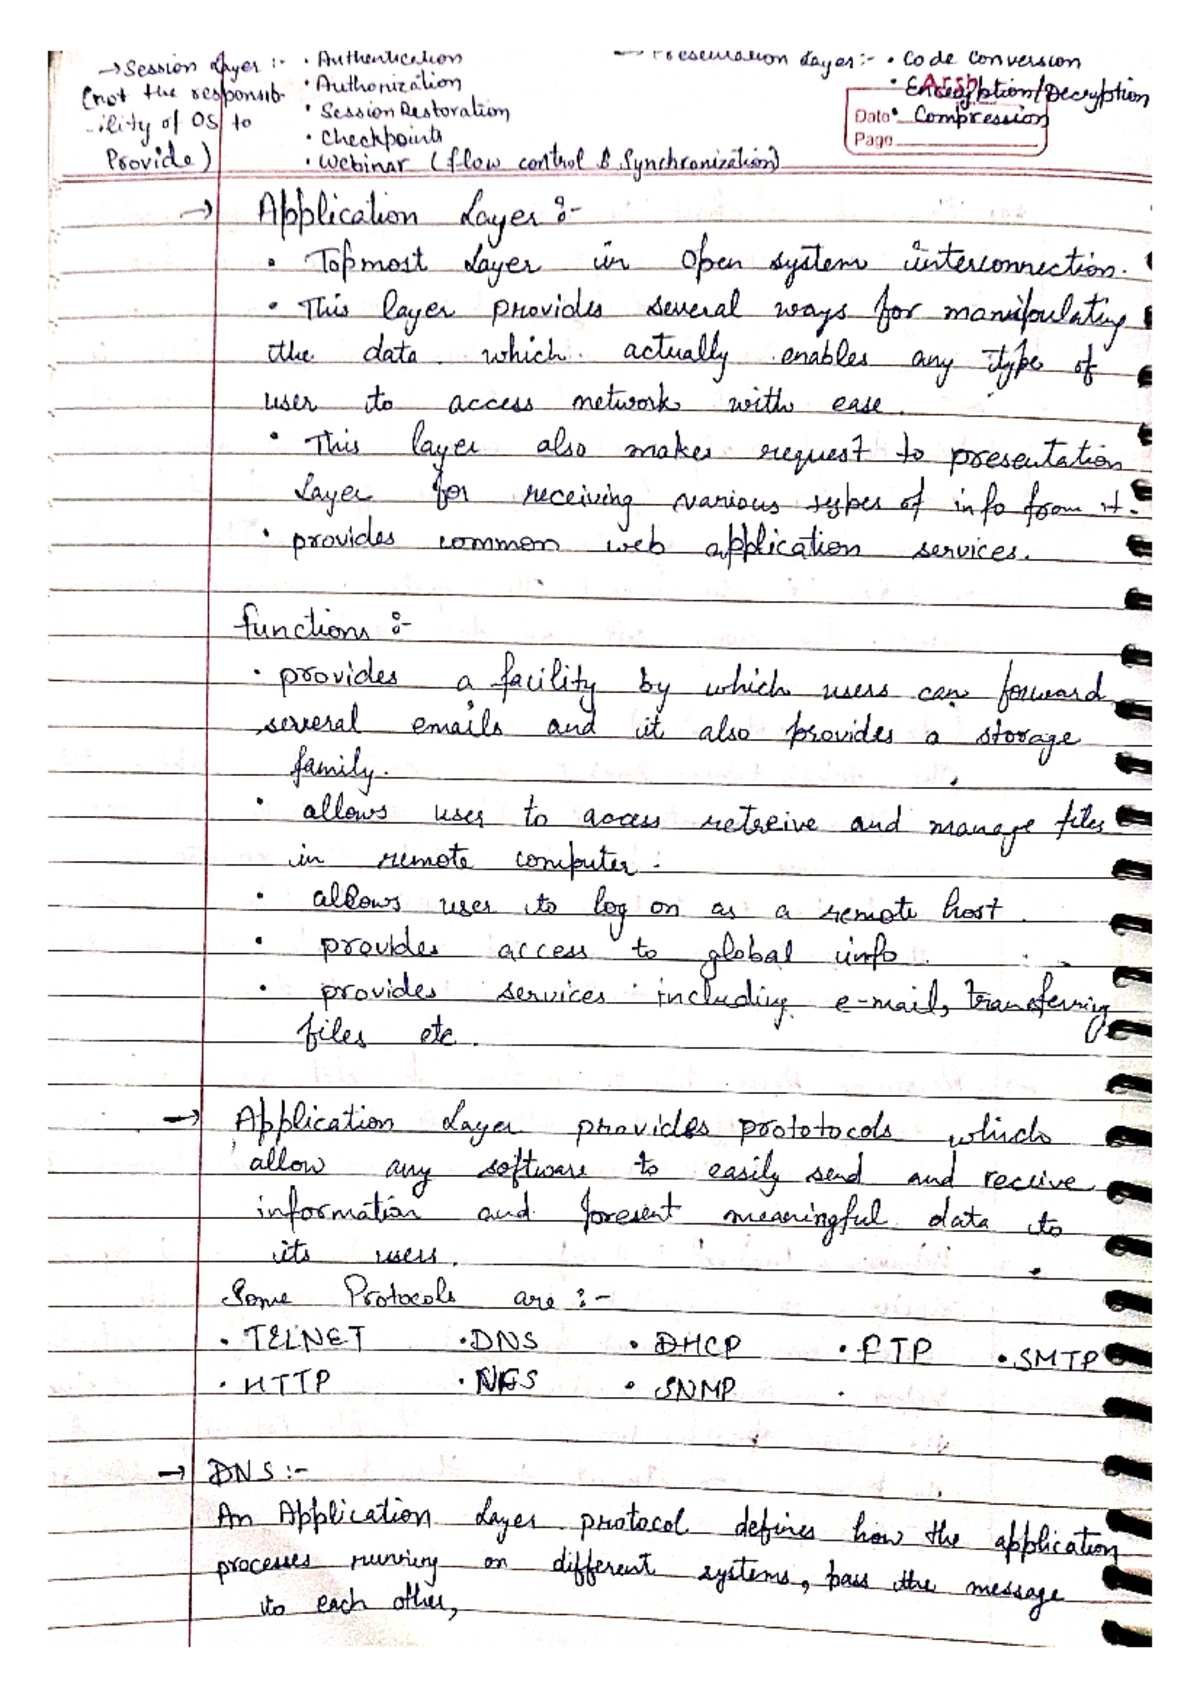 → Session Layer :- • Authentication
(not the responsib- • Authorization
ility of OS to • Session Restoration
Provide) • Checkpoints
• Webinar (flow control & Synchronization)
→ Presentation Layer:- • Code Conversion
• Encryption/Decryption
Date • Compression
Page
→ Application Layer :-
• Topmost Layer in Open system interconnection.
• This layer provides several ways for manipulating
the data which actually enables any type of
user to access network with ease.
• This layer also makes request to presentation
Layer for receiving various types of info from it.
• provides common web application services.
functions :-
• provides a facility by which users can forward
several emails and it also provides a storage
family.
• allows user to access retreive and manage files
in remote computer.
• allows user to log on as a remote host.
• provides access to global info.
• provides services including e-mail, transferring
files etc.
→ Application Layer provides prototocols which
allow any software to easily send and receive
information and present meaningful data to
its users.
Some Protocols are :-
• TELNET • DNS • DHCP • FTP • SMTP
• HTTP • NFS • SNMP •
→ DNS :-
An Application Layer protocol defines how the application
processes running on different systems, pass the message
to each other,